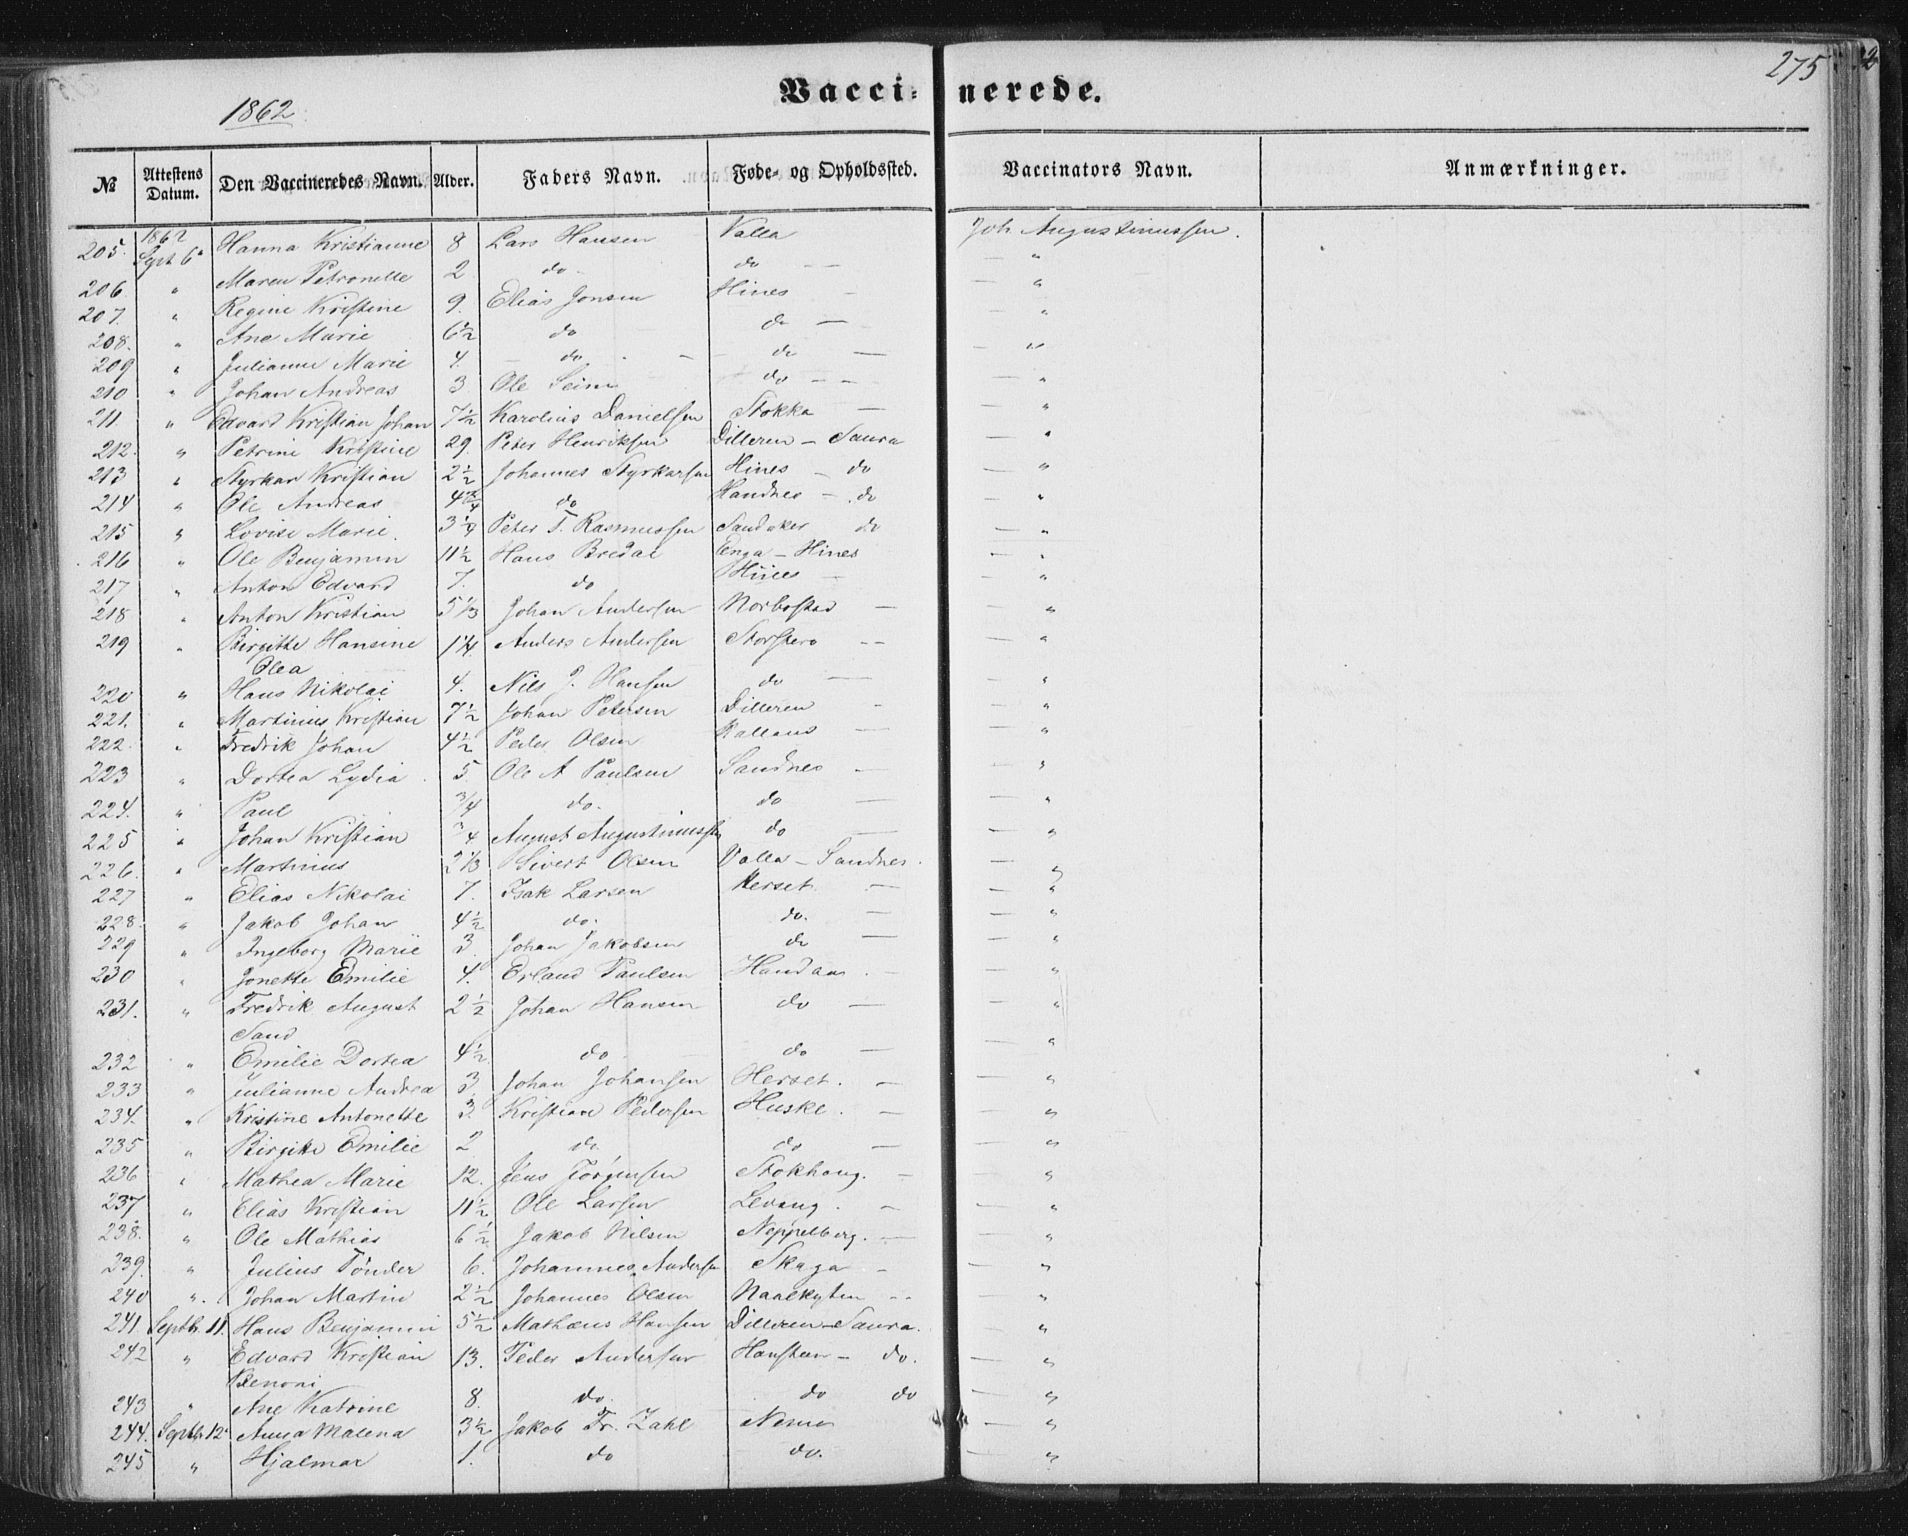 275
1862
Vaccinerede.
№ | Attestens Datum. | Den Vaccineredes Navn. | Alder. | Faders Navn. | Føde- og Opholdssted. | Vaccinators Navn. | Anmærkninger.
205. | 1862 Sept 6 | Hanna Kristianne | 8 | Lars Hansen | Valla | Joh Augustinussen.
206. | " | Maren Petronelle | 2 | do | do — | — "
207. | " | Regine Kristine | 9. | Elias Jonsen | Hines — | — "
208. | " | Ane Marie | 6½ | do | do — | — "
209 | " | Julianne Marie | 4. | do | do — | — "
210 | " | Johan Andreas | 3 | Ole | do — | — "
211. | " | Edvard Kristian Johan | 7½ | Karolius Danielsen | Stokka — | — "
212. | " | Petrine Kristine | 29. | Peter Henriksen | Dilleren — Saura | — "
213 | " | Styrkar Kristian | 2½ | Johannes Styrkarsen | Hines — do | — "
214 | " | Ole Andreas | 4¾ | do | Handnes — do | — "
215 | " | Lovise Marie. | 3¼ | Peter T. Rasmussen | Sandaker do | — "
216 | " | Ole Benjamin | 11½ | Hans Bredal | Enga — Hines | — "
217 | " | Anton Edvard | 7. | do | Hines — | — "
218 | " | Anton Kristian | 5⅓ | Johan Andersen | Norbostad — | — "
219 | " | Birgitte Hansine | 1¼. | Anders Andersen | Storstero — | — "
Olea
220 | " | Hans Nikolai | 4. | Nils J. Hansen | do — | — "
221. | " | Martinius Kristian | 7½ | Johan Petersen | Dilleren — | — "
222. | " | Fredrik Johan | 4½ | Peder Olsen | — | — "
223 | " | Dortea Lydia | 5. | Ole A Paulsen | Sandnes — | — "
224. | " | Paul | ¾ | do. | do — | — "
225 | " | Johan Kristian | ¾ | August Augustinussen | do — | — "
226. | " | Martinus | 2⅓ | Sivert Olsen | Valla — Sandnes. | — "
227 | " | Elias Nikolai | 7. | Isak Larsen | Herset. — | — "
228. | " | Jakob Johan | 4½ | do. | do. — | — "
229 | " | Ingeborg Marie | 3. | Johan Jakobsen | do — | — "
230 | " | Jonette Emilie | 4. | Erland Paulsen | — | — "
231. | " | Fredrik August | 2½ | Johan Hansen | do — | — "
Sand
232 | " | Emilie Dortea | 4½ | do | do — | — "
233 | " | Julianne Andrea | 3 | Johan Johansen | Herset. — | — "
234. | " | Kristine Antonette | 3. | Kristian Pedersen | Huske. — | — "
235 | " | Birgitte Emilie | 2 | do | do — | — "
236 | " | Mathea Marie | 12. | Jens Jørgensen | Stokhaug. — | — "
237 | " | Elias Kristian | 11½ | Ole Larsen | Levang. — | — "
238. | " | Ole Mathias | 6½ | Jakob Nilsen | Neppelberg. — | — "
239. | " | Julius Tønder | 6. | Johannes Andersen | Skaga — | — "
240 | " | Johan Martin | 2½ | Johannes Olsen | — | — "
241. | Septb. 11. | Hans Benjamin | 5½ | Mathæus Hansen | Dilleren — Saura. | — "
242 | " | Edvard Kristian | 13. | Peder Andersen | — do. | — "
Benoni
243 | " | Ane Katrine | 8. | do. | do do | — "
244. | Septb. 12 | Anna Malena | 3½ | Jakob Fr. Zahl | Nesna | — "
245 | " | Hjalmar | 1. | do | do. | — "